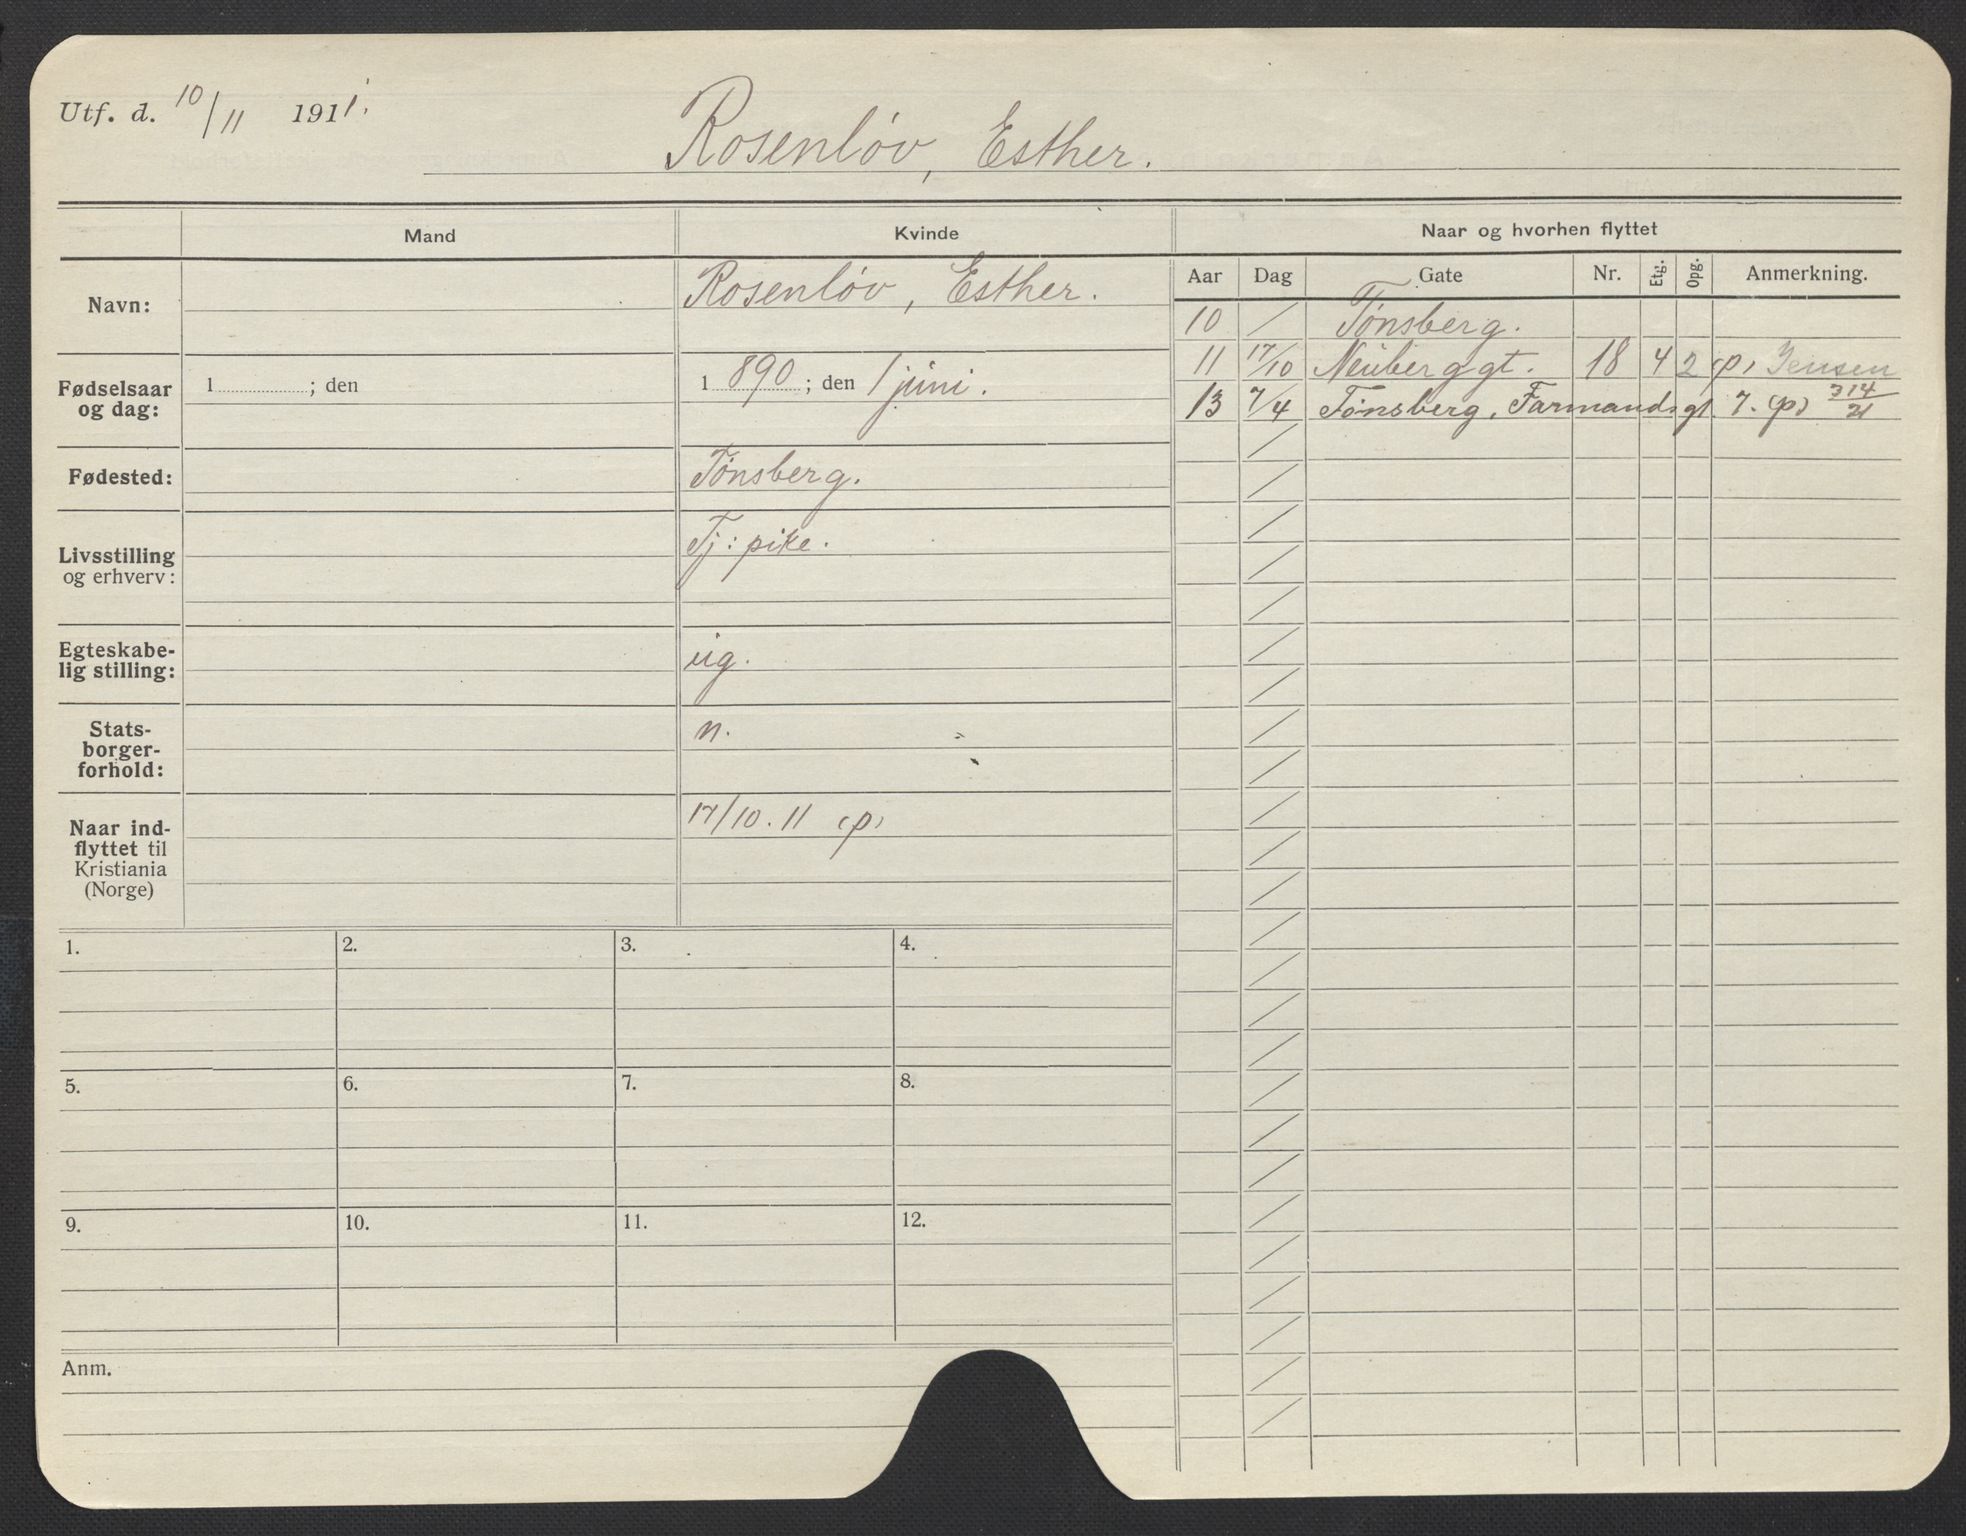 Utf. d. 10/11 1911.
Rosenløv, Esther.
Mand
Kvinde
Naar og hvorhen flyttet
Aar Dag Gate Nr. Etg. Opg. Anmerkning.
Navn:
Rosenløv, Esther.
Fødselsaar
og dag:
1 ; den
1 890 ; den 1 juni.
Fødested:
Tönsberg.
Livsstilling
og erhverv:
Tj: pike.
Egteskabe-
lig stilling:
ug.
Stats-
borger-
forhold:
n.
Naar ind-
flyttet til
Kristiania
(Norge)
17/10. 11 (p)
10 / Tönsberg.
11 17/10 Neuberggt. 18 4 2 (p) Jensen
13 7/4 Tønsberg, Farmandsgt 7. (p) 314/21
1. 2. 3. 4.
5. 6. 7. 8.
9. 10. 11. 12.
Anm.